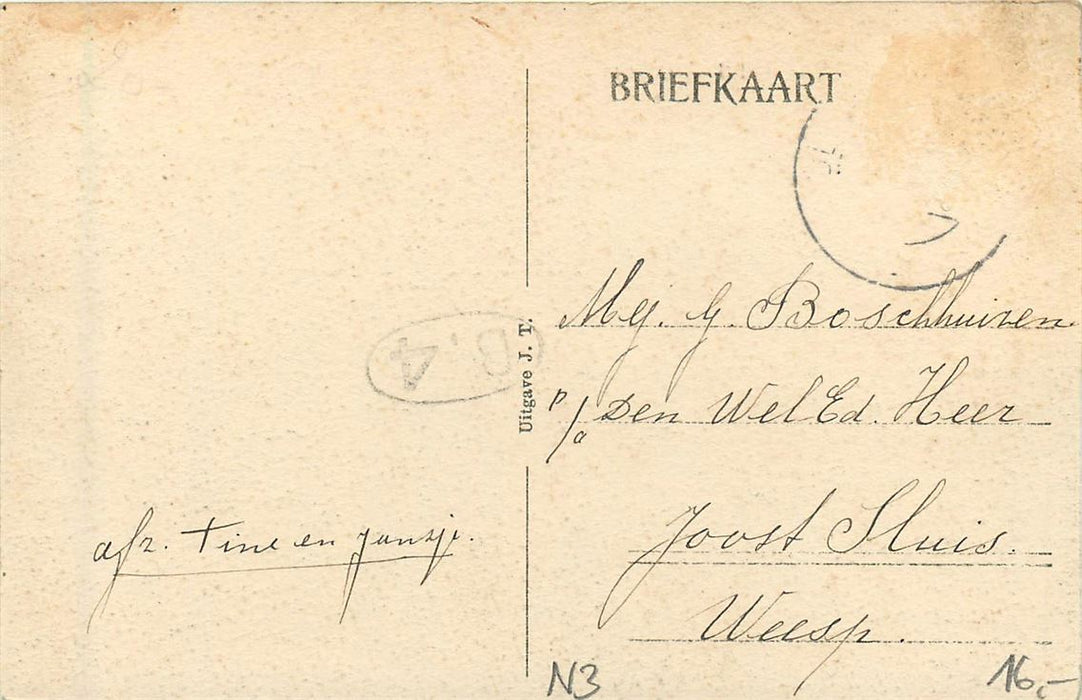 BRIEFKAART
Mej. G. Boschhuizen
p/a Den WelEd. Heer
Joost Sluis.
Weesp.
Uitgave J. T.
B.4
afz. Tine en Jansje.
N3
16,-